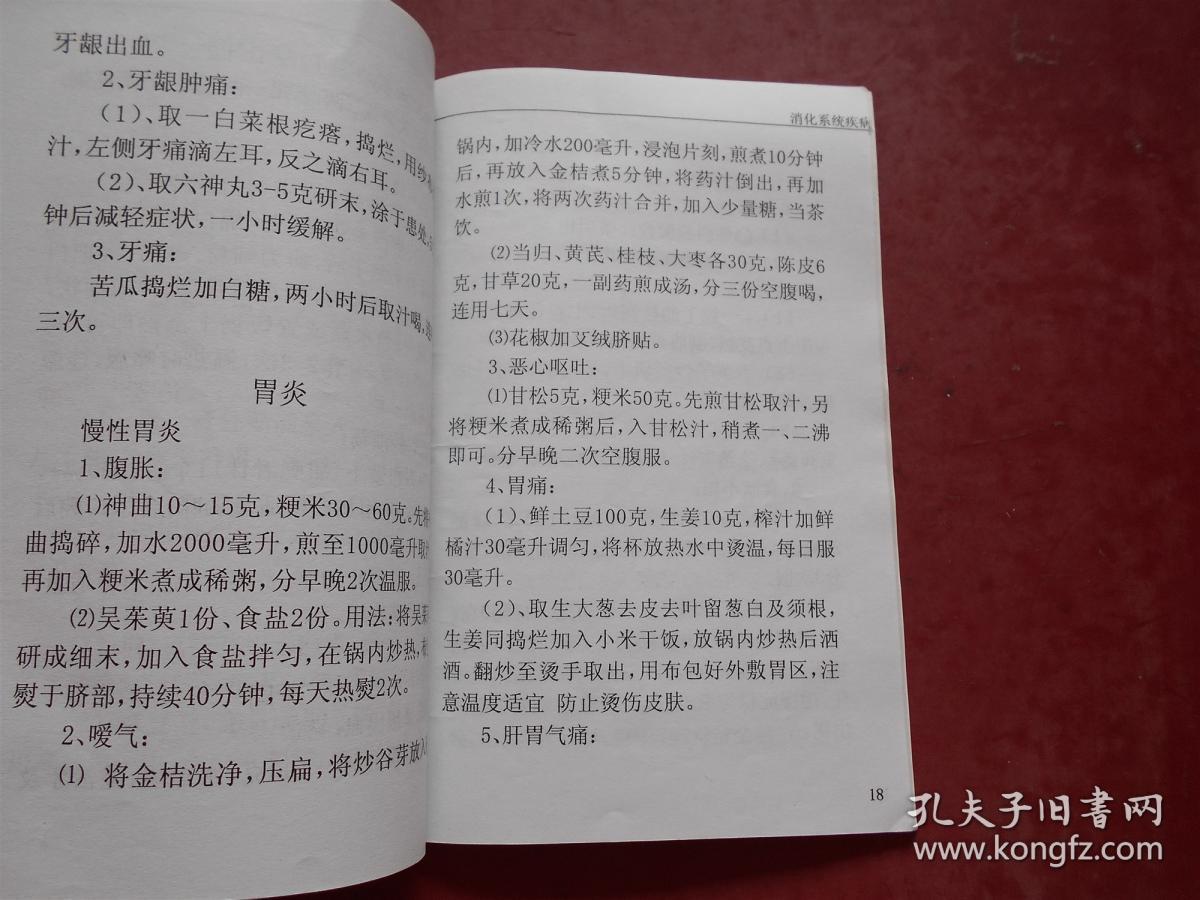 牙龈出血。
2、牙龈肿痛：
(1)、取一白菜根疙瘩，捣烂，用纱
汁，左侧牙痛滴左耳，反之滴右耳。
(2)、取六神丸3-5克研末，涂于患处，
钟后减轻症状，一小时缓解。
3、牙痛：
苦瓜捣烂加白糖，两小时后取汁喝，
三次。
胃炎
慢性胃炎
1、腹胀：
⑴神曲10～15克，粳米30～60克。先
曲捣碎，加水2000毫升，煎至1000毫升取
再加入粳米煮成稀粥，分早晚2次温服。
⑵吴茱萸1份、食盐2份。用法：将吴茱
研成细末，加入食盐拌匀，在锅内炒热，
熨于脐部，持续40分钟，每天热熨2次。
2、嗳气：
⑴ 将金桔洗净，压扁，将炒谷芽放入
消化系统疾病
锅内，加冷水200毫升，浸泡片刻，煎煮10分钟
后，再放入金桔煮5分钟，将药汁倒出，再加
水煎1次，将两次药汁合并，加入少量糖，当茶
饮。
⑵当归、黄芪、桂枝、大枣各30克，陈皮6
克，甘草20克，一副药煎成汤，分三份空腹喝，
连用七天。
⑶花椒加艾绒脐贴。
3、恶心呕吐：
⑴甘松5克，粳米50克。先煎甘松取汁，另
将粳米煮成稀粥后，入甘松汁，稍煮一、二沸
即可。分早晚二次空腹服。
4、胃痛：
(1)、鲜土豆100克，生姜10克，榨汁加鲜
橘汁30毫升调匀，将杯放热水中烫温，每日服
30毫升。
(2)、取生大葱去皮去叶留葱白及须根，
生姜同捣烂加入小米干饭，放锅内炒热后洒
酒。翻炒至烫手取出，用布包好外敷胃区，注
意温度适宜 防止烫伤皮肤。
5、肝胃气痛：
18
孔夫子旧书网
www.kongfz.com